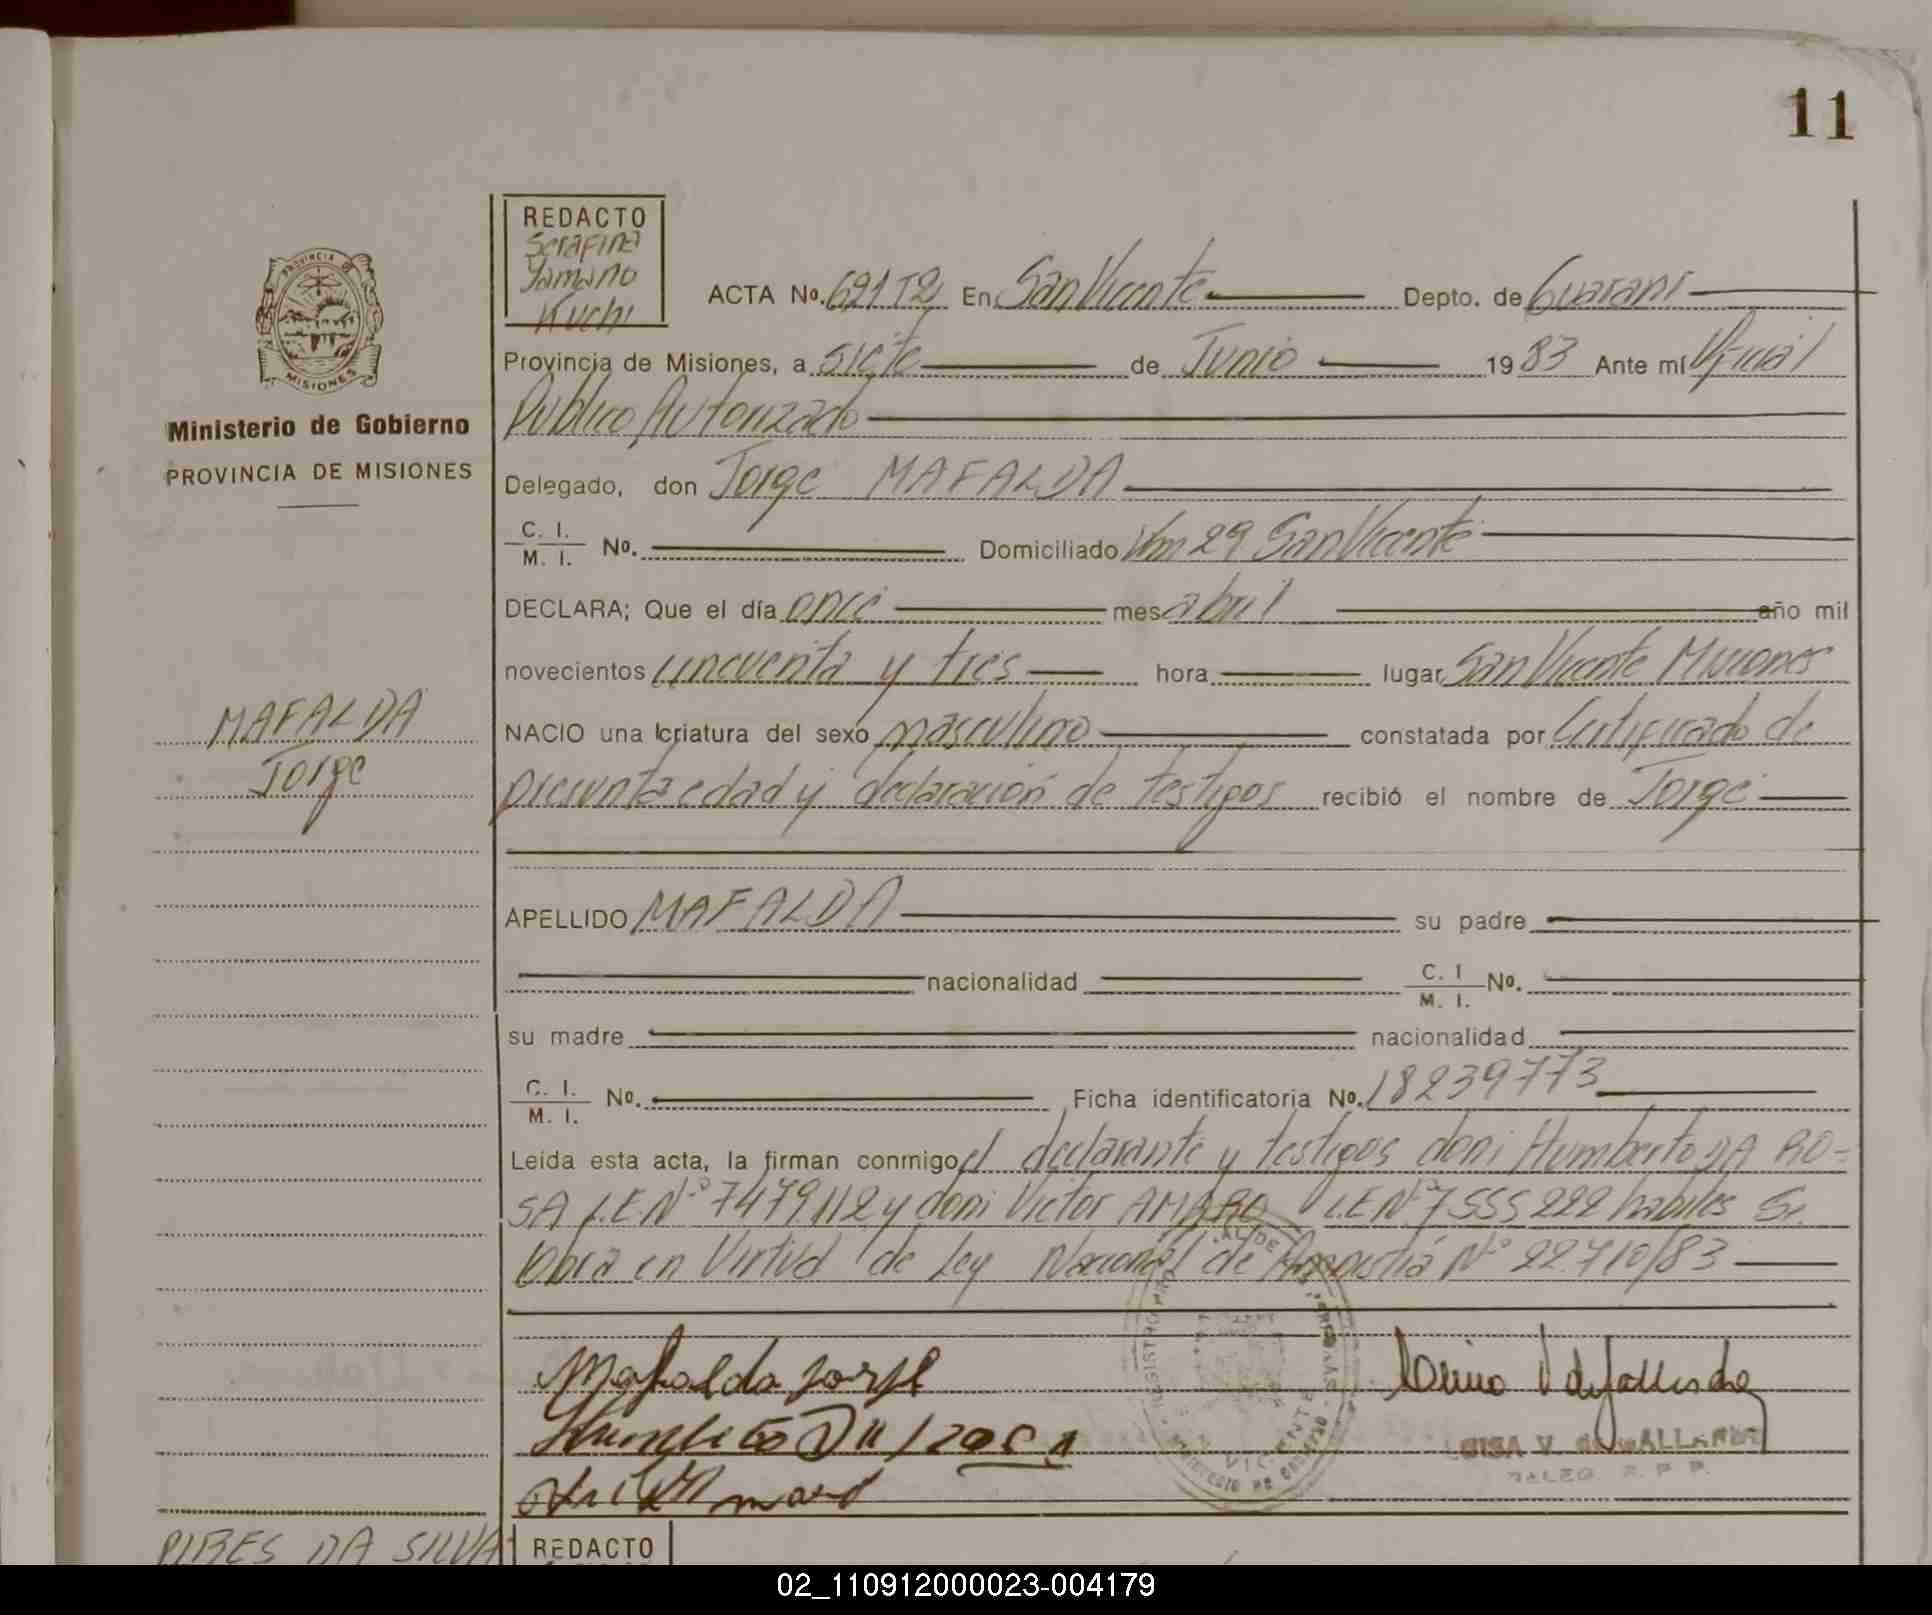 11
REDACTO
Serafina
Yamano
Kuchi
PROVINCIA DE
MISIONES
Ministerio de Gobierno
PROVINCIA DE MISIONES
ACTA No. 621 T2 En San Vicente Depto. de Guarani
Provincia de Misiones, a siete de Junio 1983 Ante mí Oficial
Publico Autorizado
Delegado, don Jorge MAFALDA
C. I.
M. I. No. Domiciliado Km 29 San Vicente
DECLARA; Que el día once mes abril año mil
novecientos cincuenta y tres hora lugar San Vicente Misiones
NACIO una criatura del sexo masculino constatada por Certificado de
presunta edad y declaración de testigos recibió el nombre de Jorge
MAFALDA
Jorge
APELLIDO MAFALDA su padre
nacionalidad C. I
M. I. No.
su madre nacionalidad
C. I.
M. I. No. Ficha identificatoria No. 18239773
Leída esta acta, la firman conmigo el declarante y testigos don: Humberto DA RO=
SA L.E.Nº 7479112 y don: Victor AMARO L.E Nº 7555222 habiles Se
labra en Virtud de Ley Nacional de Amnistía Nº 22710/83
Mafalda Jorge
PIRES DA SILVA
REDACTO
02_110912000023-004179